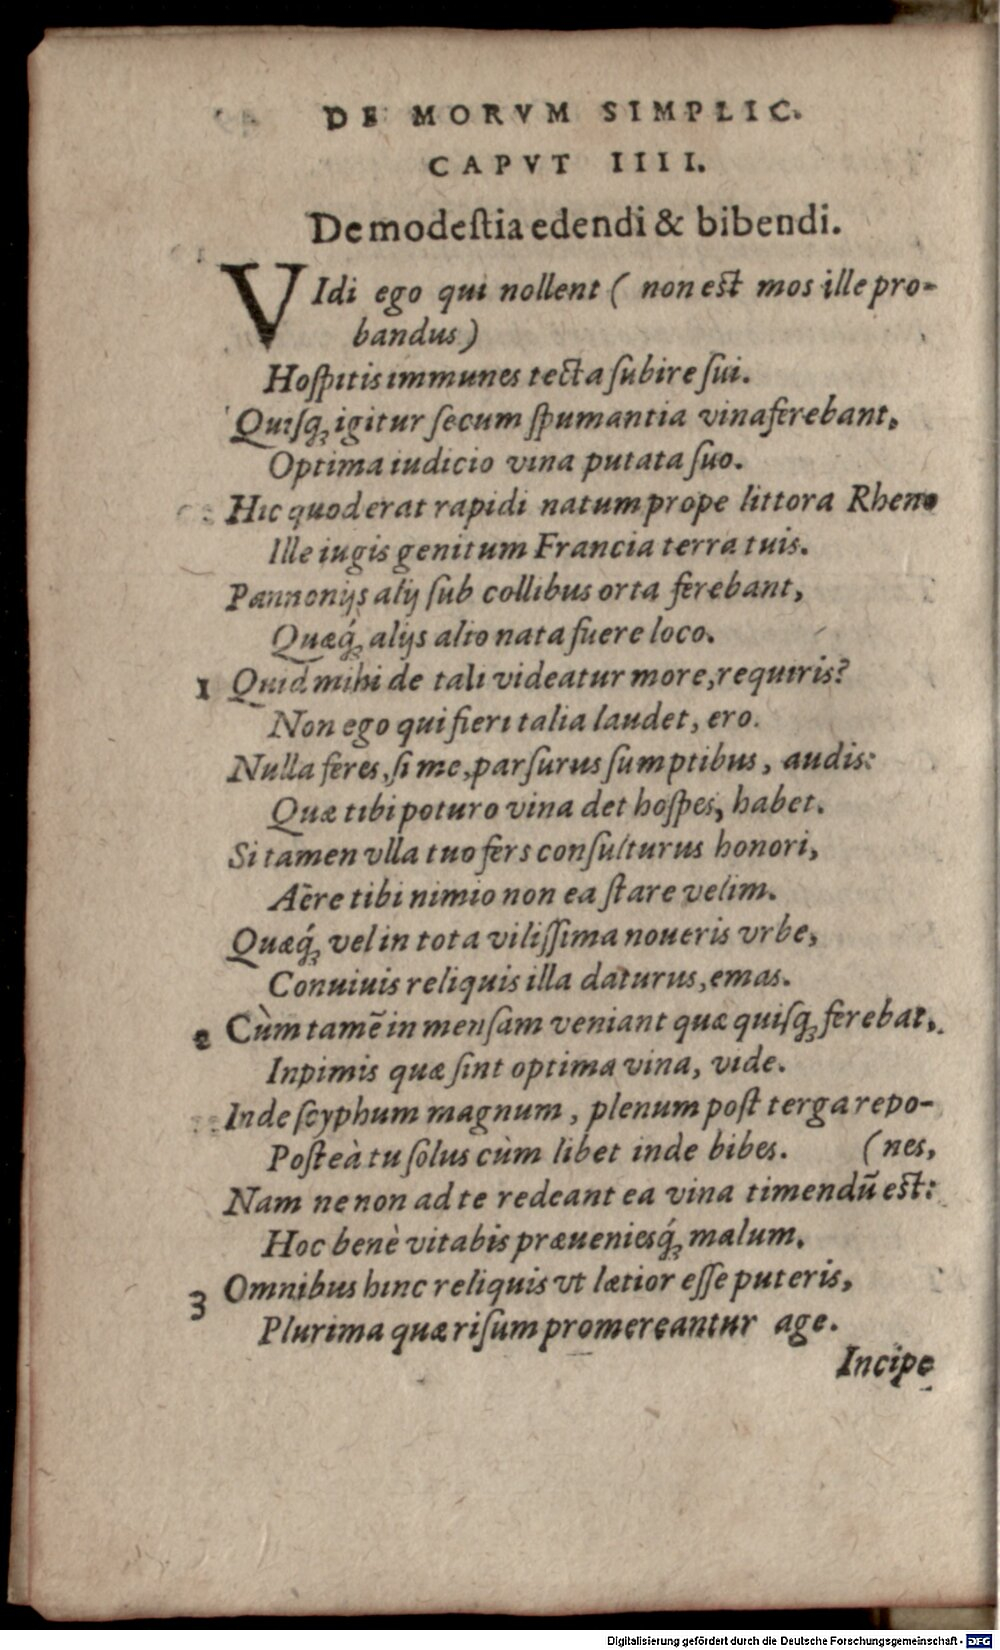 DE MORVM SIMPLIC.
CAPVT IIII.
De modestia edendi & bibendi.
VIdi ego qui nollent ( non est mos ille pro-
bandus )
Hospitis immunes tecta subire sui.
Quisq; igitur secum spumantia vina ferebant,
Optima iudicio vina putata suo.
Hic quod erat rapidi natum prope littora Rheno
Ille iugis genitum Francia terra tuis.
Pannonijs alij sub collibus orta ferebant,
Quæq́; alijs alto nata fuere loco.
1 Quid mihi de tali videatur more, requiris?
Non ego qui fieri talia laudet, ero.
Nulla feres, si me, parsurus sumptibus, audis:
Quæ tibi poturo vina det hospes, habet.
Si tamen vlla tuo fers consulturus honori,
Aëre tibi nimio non ea stare velim.
Quæq́; vel in tota vilissima noueris vrbe,
Conuiuis reliquis illa daturus, emas.
2 Cùm tamē in mensam veniant quæ quisq; ferebat,
Inpimis quæ sint optima vina, vide.
Inde scyphum magnum, plenum post terga repo-
Posteà tu solus cùm libet inde bibes. (nes,
Nam ne non ad te redeant ea vina timendū est:
Hoc benè vitabis præueniesq́; malum.
3 Omnibus hinc reliquis vt lætior esse puteris,
Plurima quæ risum promereantur age.
Incipe
Digitalisierung gefördert durch die Deutsche Forschungsgemeinschaft - DFG